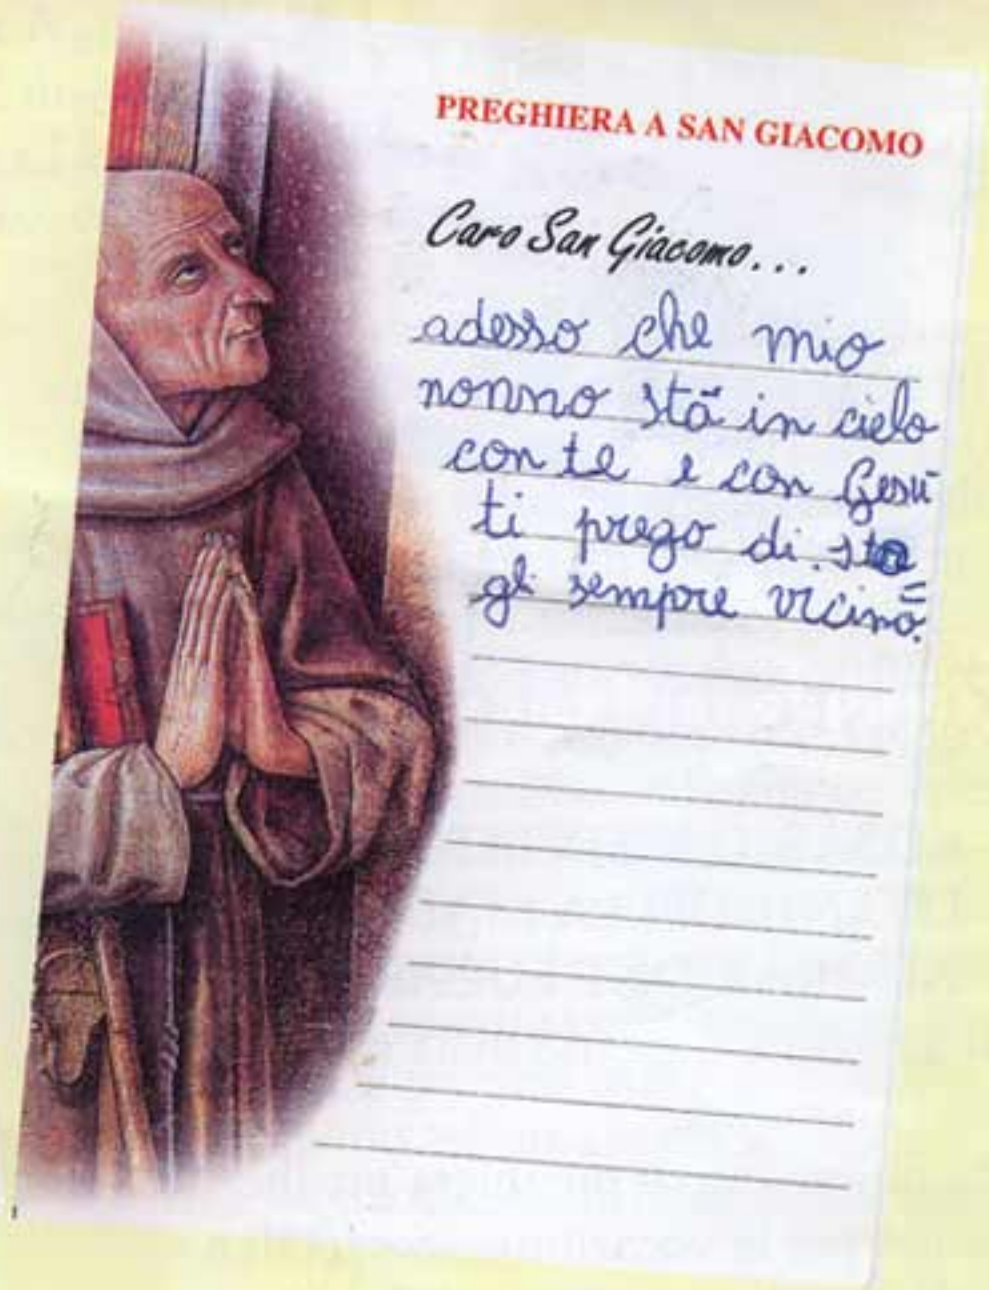 PREGHIERA A SAN GIACOMO
Caro San Giacomo...
adesso che mio
nonno stā in cielo
con te e con Gesū
ti prego di sta=
gli sempre vicino.